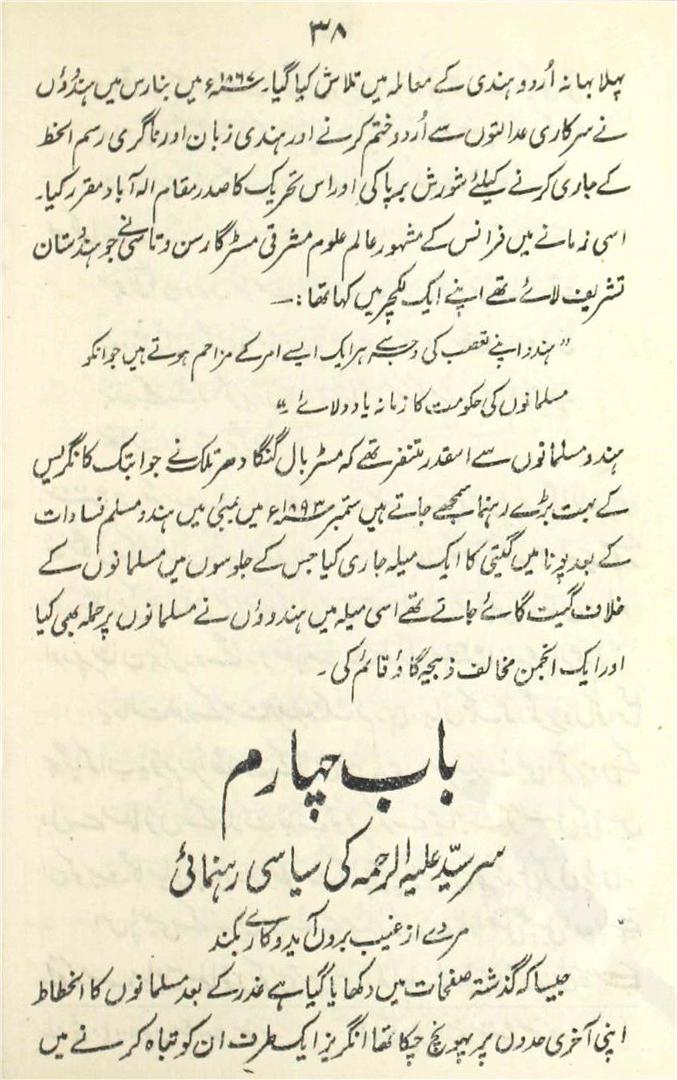 ۳۸
پہلا بہانہ اُردو ہندی کے معاملہ میں تلاش کیا گیا۔ ۱۸۶۷ء میں بنارس میں ہندوُوں
نے سرکاری عدالتوں سے اُردو ختم کرنے اور ہندی زبان اور ناگری رسم الخط
کے جاری کرنے کیلئے شورش برپا کی اور اس تحریک کا صدر مقام الہ آباد مقرر کیا۔
اسی زمانے میں فرانس کے مشہور عالم علوم مشرقی مسٹر گارسن وتاسی نے جو ہندوستان
تشریف لائے تھے اپنے ایک لکچر میں کہا تھا :۔
" ہندو اپنے تعصب کی وجہ سے ہر ایک ایسے امر کے مزاحم ہوتے ہیں جو انکو
مسلمانوں کی حکومت کا زمانہ یاد دلائے ۔"
ہندو مسلمانوں سے اسقدر متنفر تھے کہ مسٹر بال گنگا دھر تلک نے جو ابتک کانگریس
کے بہت بڑے رہنما سمجھے جاتے ہیں ستمبر ۱۸۹۳ء میں بمبئی میں ہندو مسلم فسادات
کے بعد پونا میں گنپتی کا ایک میلہ جاری کیا جس کے جلوسوں میں مسلمانوں کے
خلاف گیت گائے جاتے تھے اسی میلہ میں ہندووُں نے مسلمانوں پر حملہ بھی کیا
اور ایک انجمن مخالف ذبیحہ گاؤ قائم کی ۔
باب چہارم
سرسیّد علیہ الرحمہ کی سیاسی رہنمائی
مردے از غیب بروں آید و کارے بکند
جیسا کہ گذشتہ صفحات میں دکھایا گیا ہے غدر کے بعد مسلمانوں کا انحطاط
اپنی آخری حدوں پر پہونچ چکا تھا انگریز ایک طرف ان کو تباہ کرنے میں